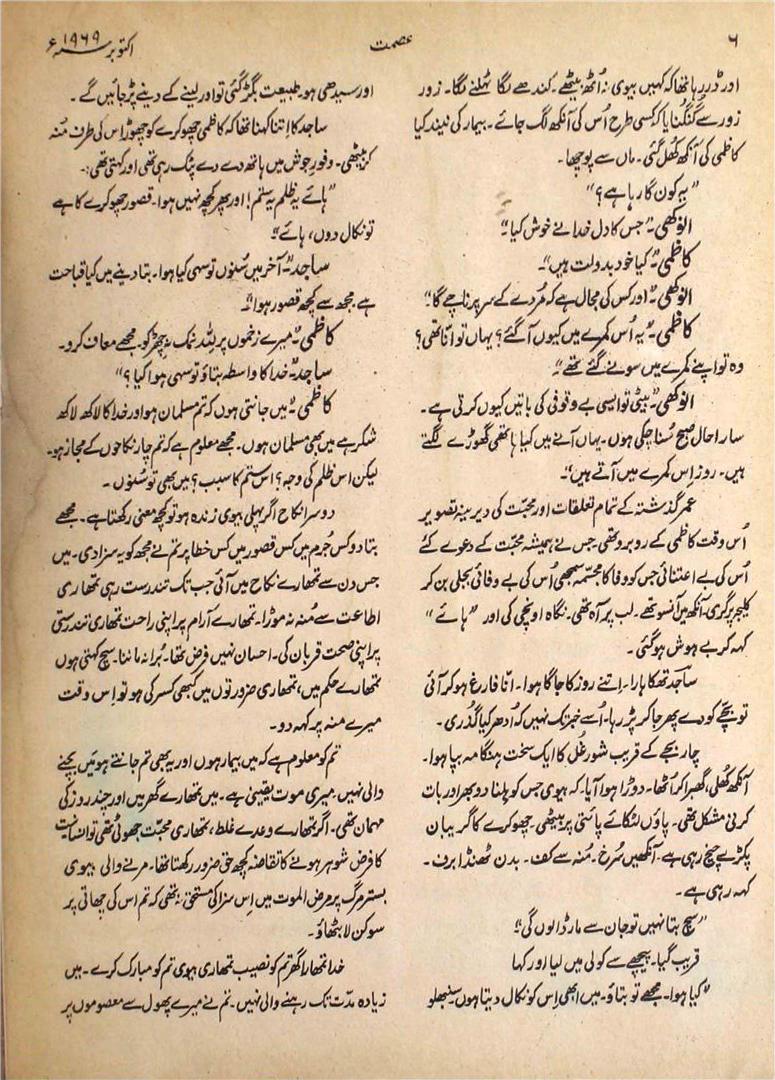 ۶
عصمت
اکتوبر ۱۹۶۹ء
اور ڈر رہا تھا کہ کہیں بیوی نہ اُٹھ بیٹھے۔ کندھے لگا ٹہلنے لگا۔ زور
زور سے گنگنایا کہ کسی طرح اُس کی آنکھ لگ جائے۔ بیمار کی نیند کیا
کاظمی کی آنکھ کھل گئی۔ ماں سے پوچھا۔
"یہ کون گا رہا ہے؟"
انوکھی۔ "جس کا دل خدا نے خوش کیا"۔
کاظمی۔ "کیا خود بدولت ہیں"۔
انوکھی۔ "اور کس کی مجال ہے کہ مُردے کے سر پر ناچے گا"۔
کاظمی۔ "یہ اُس کمرے میں کیوں آ گئے؟ یہاں تو انّا تھی؟
وہ تو اپنے کمرے میں سونے گئے تھے"۔
انوکھی۔ "بیٹی تو ایسی بے وقوفی کی باتیں کیوں کرتی ہے۔
سارا حال صبح سُنا چکی ہوں۔ یہاں آنے میں کیا ہاتھی گھوڑے لگتے
ہیں۔ روز اِس کمرے میں آتے ہیں"۔
عمر گذشتہ کے تمام تعلقات اور محبّت کی دیرینہ تصویر
اُس وقت کاظمی کے روبرو تھی۔ جس نے ہمیشہ محبّت کے دعوے کئے
اُس کی بے اعتنائی جس کو وفا کا مجسّمہ سمجھی اُس کی بے وفائی بجلی بن کر
کلیجہ پر گری۔ آنکھ میں آنسو تھے۔ لب پر آہ تھی۔ نگاہ اونچی کی اور "ہائے"
کہہ کر بے ہوش ہو گئی۔
ساجد تھکا ہارا۔ اِتنے روز کا جاگا ہوا۔ انّا فارغ ہو کر آئی
تو بچّے کو دے پھر جا کر پڑ رہا۔ اُسے خبر تک نہیں کہ اُدھر کیا گذری۔
چار بجے کے قریب شور غُل کا ایک سخت ہنگامہ بپا ہوا۔
آنکھ کھلی، گھبرا کر اُٹھا۔ دوڑا ہوا آیا۔ کہ بیوی جس کو ہلنا دوبھر اور بات
کرنی مشکل تھی۔ پاؤں لٹکائے پائنتی پر بیٹھی۔ چھوکرے کا گریبان
پکڑے چیخ رہی ہے۔ آنکھیں سُرخ۔ مُنہ سے کف۔ بدن ٹھنڈا برف۔
کہہ رہی ہے۔
"سچ بتا نہیں تو جان سے مار ڈالوں گی"۔
قریب گیا۔ پیچھے سے کولی میں لیا اور کہا
"کیا ہوا۔ مجھے تو بتاؤ۔ میں ابھی اِس کو نکال دیتا ہوں۔ سنبھلو
اور سیدھی ہو۔ طبیعت بگڑ گئی تو اور لینے کے دینے پڑ جائیں گے۔
ساجد کا اِتنا کہنا تھا کہ کاظمی چھوکرے کو چھوڑ اس کی طرف مُنہ
کر بیٹھی۔ وفورِ جوش میں ہاتھ دے دے پٹک رہی تھی اور کہتی تھی:۔
"ہائے یہ ظلم یہ ستم! اور پھر کچھ نہیں ہوا۔ قصور چھوکرے کا ہے
تو نکال دوں، ہائے"۔
ساجد۔ "آخر میں سُنوں تو سہی کیا ہوا۔ بتا دینے میں کیا قباحت
ہے۔ مجھ سے کچھ قصور ہوا"۔
کاظمی۔ "میرے زخموں پر لِلّٰہ نمک نہ چھڑکو۔ مجھے معاف کرو۔
ساجد۔ "خدا کا واسطہ بتاؤ تو سہی ہوا کیا؟"
کاظمی۔ "میں جانتی ہوں کہ تم مسلمان ہو اور خدا کا لاکھ لاکھ
شکر ہے میں بھی مسلمان ہوں۔ مجھے معلوم ہے کہ تم چار نکاحوں کے مجاز ہو۔
لیکن اس ظلم کی وجہ؟ اس ستم کا سبب؟ میں بھی تو سُنوں۔
دوسرا نکاح اگر پہلی بیوی زندہ ہو تو کچھ معنی رکھتا ہے۔ مجھے
بتا دو کس جُرم میں کس قصور میں کس خطا پر تم نے مجھ کو یہ سزا دی۔ میں
جس دن سے تمھارے نکاح میں آئی جب تک تندرست رہی تمھاری
اطاعت سے مُنہ نہ موڑا۔ تمھارے آرام پر اپنی راحت تمھاری تندرستی
پر اپنی صحت قربان کی۔ احسان نہیں فرض تھا۔ بُرا نہ ماننا۔ سچ کہتی ہوں
تمھارے حکم میں، تمھاری ضرورتوں میں کبھی کسر کی ہو تو اِس وقت
میرے منہ پر کہہ دو۔
تم کو معلوم ہے کہ میں بیمار ہوں اور یہ بھی تم جانتے ہو میں بچنے
والی نہیں۔ میری موت یقینی ہے۔ میں تمھارے گھر میں اور چند روز کی
مہمان تھی۔ اگر تمھارے وعدے غلط، تمھاری محبّت جھوٹی تھی تو انسانیت
کا فرض شوہر ہونے کا تقاضہ کچھ حق ضرور رکھتا تھا۔ مرنے والی بیوی
بسترِ مرگ پر مرض الموت میں اِس سزا کی مستحق نہ تھی کہ تم اس کی چھاتی پر
سوکن لا بٹھاؤ۔
خدا تمھارا گھر تم کو نصیب تمھاری بیوی تم کو مبارک کرے۔ میں
زیادہ مدّت تک رہنے والی نہیں۔ تم نے میرے پھول سے معصوموں پر